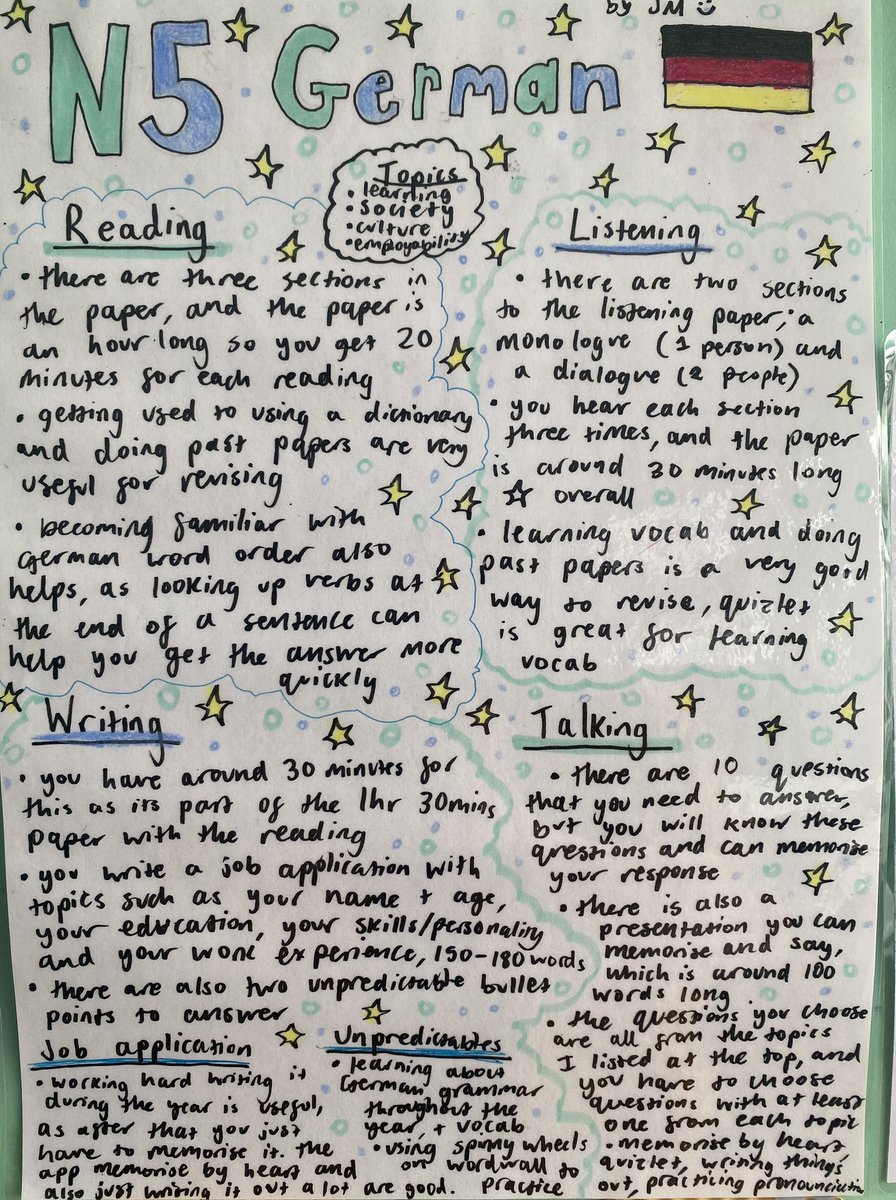 by JM
N5 German
Topics
• learning
• society
• culture
• employability
Reading
• there are three sections in
the paper, and the paper is
an hour long so you get 20
minutes for each reading
• getting used to using a dictionary
and doing past papers are very
useful for revising
• becoming familiar with
German word order also
helps, as looking up verbs at
the end of a sentence can
help you get the answer more
quickly
Listening
• there are two sections
to the listening paper; a
monologue (1 person) and
a dialogue (2 people)
• you hear each section
three times, and the paper
is around 30 minutes long
overall
• learning vocab and doing
past papers is a very good
way to revise, quizlet
is great for learning
vocab
Writing
• you have around 30 minutes for
this as its part of the 1hr 30mins
paper with the reading
• you write a job application with
topics such as your name + age,
your education, your skills/personality
and your work experience, 150-180 words
• there are also two unpredictable bullet
points to answer
Job application
• working hard writing it
during the year is useful,
as after that you just
have to memorise it. The
app memorise by heart and
also just writing it out a lot are good.
Unpredictables
• learning about
German grammar
throughout the
year, + vocab
• using spinny wheels
on wordwall to
practice
Talking
• there are 10 questions
that you need to answer,
but you will know these
questions and can memorise
your response
• there is also a
presentation you can
memorise and say,
which is around 100
words long.
• the questions you choose
are all from the topics
I listed at the top, and
you have to choose
questions with at least
one from each topic
• memorise by heart,
quizlet, writing things
out, practicing pronunciation